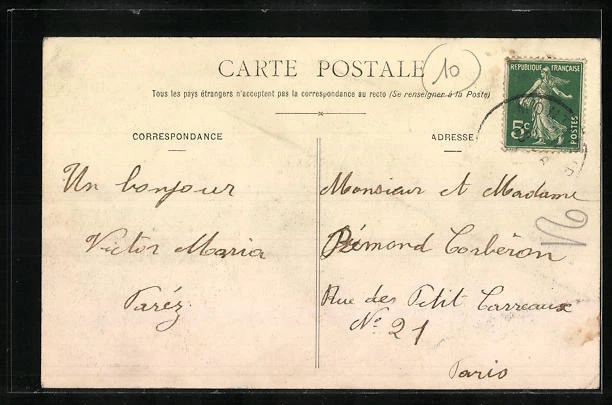 CARTE POSTALE
10
Tous les pays étrangers n'acceptent pas la correspondance au recto (Se renseigner à la Poste)
REPUBLIQUE FRANÇAISE
5c
POSTES
CORRESPONDANCE
Un bonjour
Victor Maria
Taréz
ADRESSE
Monsieur et Madame
Rémond Corbéron
Rue des Petit Carreaux
No 21
Paris